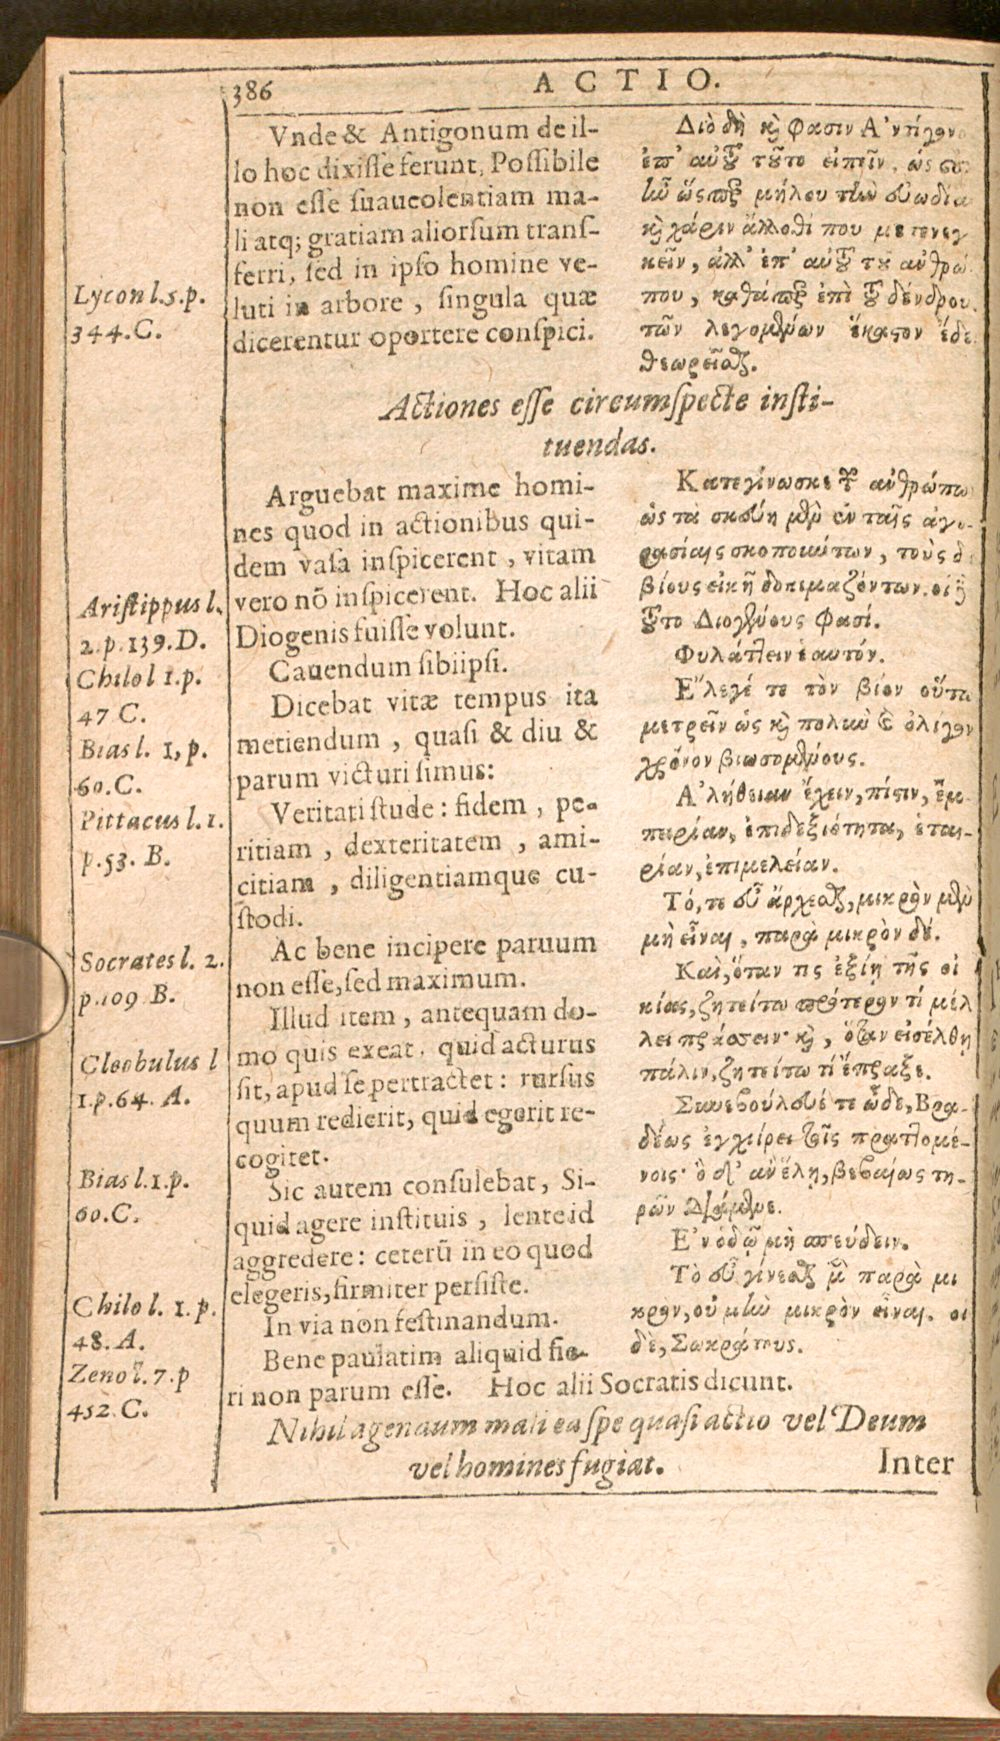 386
ACTIO.
Vnde & Antigonum de il-
lo hoc dixisse ferunt, Possibile
non esse suaueolentiam ma-
li atq; gratiam aliorsum trans-
ferri, sed in ipso homine ve-
luti in arbore, singula quæ
dicerentur oportere conspici.
Lycon l.5.p.
344.C.
Διὸ δὴ κỳ φασιν Ἀντίγονο
ἐπ' αὐτοῦ τοῦτο εἰπεῖν, ὡς οὐκ
ἦν ὥσπερ μήλου τὴν εὐωδία
κỳ χάριν ἄλλοθί που μετενεγ
κεῖν, ἀλλ' ἐπ' αὐτοῦ τοῦ ἀνθρώ
που, καθάπερ ἐπὶ τοῦ δένδρου
τῶν λεγομένων ἕκαστον ἔδει
θεωρεῖσθαι.
Actiones esse circumspecte insti-
tuendas.
Arguebat maxime homi-
nes quod in actionibus qui-
dem vasa inspicerent, vitam
vero nō inspicerent. Hoc alii
Diogenis fuisse volunt.
Cauendum sibiipsi.
Dicebat vitæ tempus ita
metiendum, quasi & diu &
parum victuri simus:
Veritati stude: fidem, pe-
ritiam, dexteritatem, ami-
citiam, diligentiamque cu-
stodi.
Ac bene incipere paruum
non esse, sed maximum.
Illud item, antequam do-
mo quis exeat, quid acturus
sit, apud se pertractet: rursus
quum redierit, quid egerit re-
cogitet.
Sic autem consulebat, Si-
quid agere instituis, lente id
aggredere: ceterū in eo quod
elegeris, firmiter persiste.
In via non festinandum.
Bene paulatim aliquid fie-
ri non parum esse. Hoc alii Socratis dicunt.
Aristippus l.
2.p.139.D.
Chilo l 1.p.
47 C.
Bias l. 1, p.
60.C.
Pittacus l.1.
p.53. B.
Socrates l. 2.
p.109 B.
Cleobulus l
1.p.64. A.
Bias l.1.p.
60.C.
Chilo l. 1. p.
48.A.
Zeno l.7.p
452.C.
Κατεγίνωσκε τῶν ἀνθρώπω
ὡς τὰ σκεύη μὲν ἐν ταῖς ἀγο-
ρασίαις σκοπούντων, τοὺς δὲ
βίους εἰκῆ δοκιμαζόντων. οἱ δὲ
τοῦτο Διογένους φασί.
Φυλάττειν ἑαυτόν.
Ἔλεγέ τε τὸν βίον οὕτω
μετρεῖν ὡς κỳ πολὺν κỳ ὀλίγον
χρόνον βιωσομένους.
Ἀλήθειαν ἔχειν, πίστιν, ἐμ-
πειρίαν, ἐπιδεξιότητα, ἑται-
ρίαν, ἐπιμελείαν.
Τό, τε εὖ ἄρχεσθαι, μικρὸν μὲν
μὴ εἶναι, παρὰ μικρὸν δέ.
Καὶ, ὅταν τις ἐξίῃ τῆς οἰ
κίας, ζητείτω πρότερον τί μέλ
λει πράσσειν· κỳ, ὅταν εἰσέλθῃ
πάλιν, ζητείτω τί ἔπραξε.
Συνεβούλευέ τε ὧδε, Βρα-
δέως ἐγχείρει τοῖς πραττομέ-
νοις· ὃ δ' ἂν ἕλῃ, βεβαίως τη-
ρῶν διάμενε.
Ἐν ὁδῷ μὴ σπεύδειν.
Τὸ εὖ γίνεσθαι μὲν παρὰ μι
κρὸν, οὐ μὴν μικρὸν εἶναι. οἱ
δὲ, Σωκράτους.
Nihil agendum mali ea spe quasi actio vel Deum
vel homines fugiat.
Inter